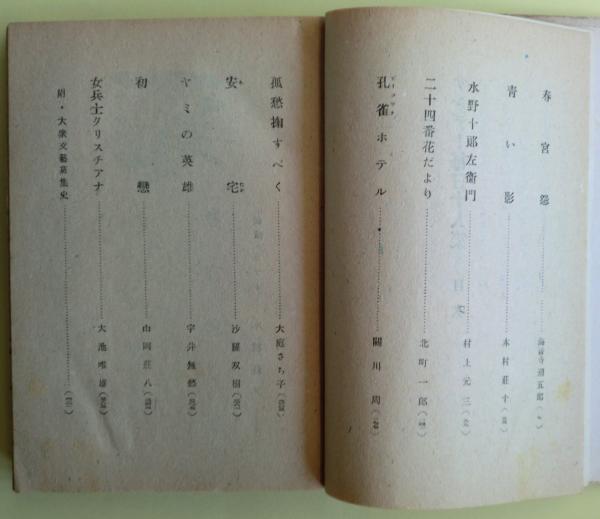 春宮怨 海音寺潮五郎
青い影 木村荘十
水野十郎左衛門 村上元三
二十四番花だより 北町一郎
孔雀ホテル 關川周
孤愁掬すべく 大庭さち子
安宅 沙羅双樹
ヤミの英雄 宇井無愁
初戀 山岡荘八
女兵士クリスチアナ 大池唯雄
附・大衆文藝蒐集史